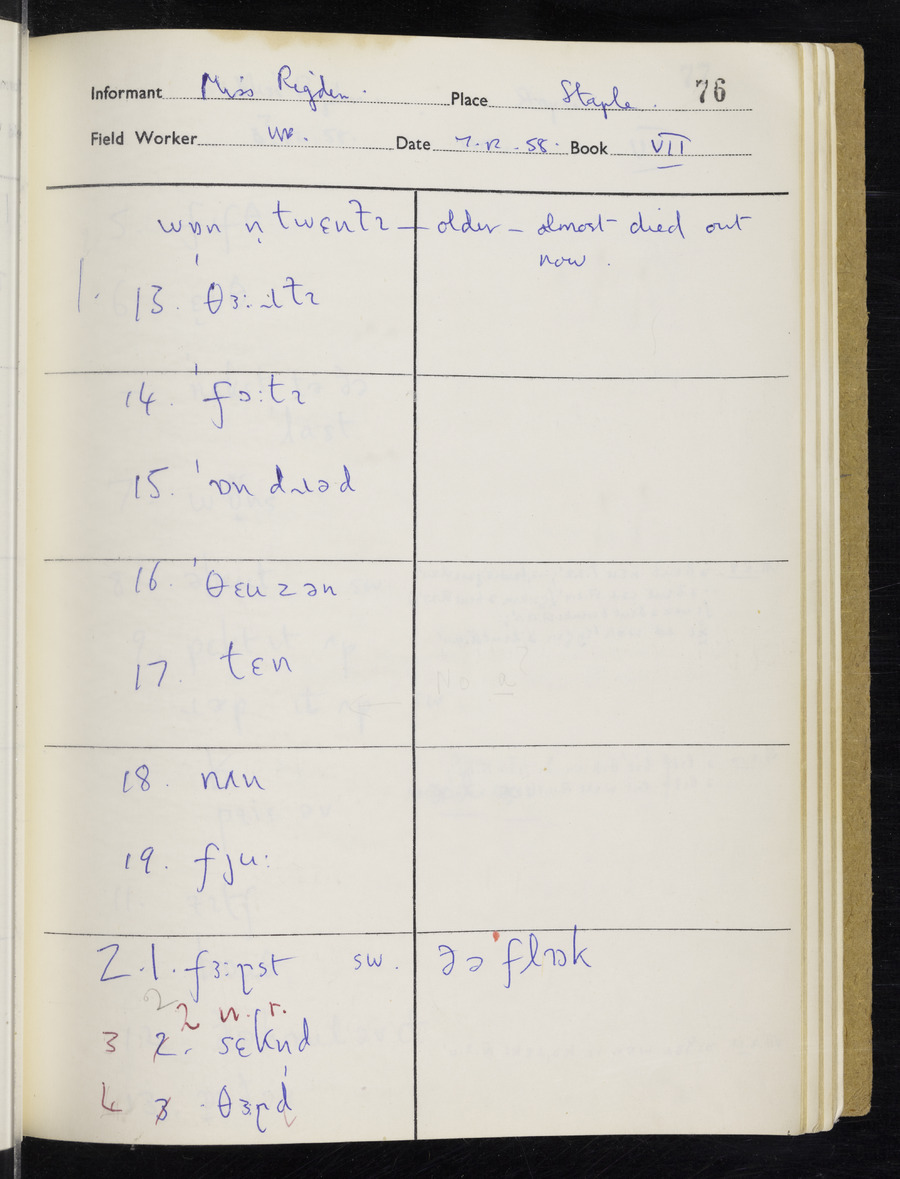 Informant Miss Rigden. Place Staple. 76
Field Worker WN. Date 7.12.58. Book VII
wɒn n̩ twɛntɪ — older – almost died out
now.
1. 13. ˈθɜːɹtɪ
14. ˈfɔːtɪ
15. ˈɒndɹəd
16. ˈθɛuzən
17. tɛn
No a?
18. nʌn
19. fjuː
2.1. fɜːɽst sw. ðə ˈflɒk
2
2 n.r.
3 2. sɛknd
4 3. θɜɽd